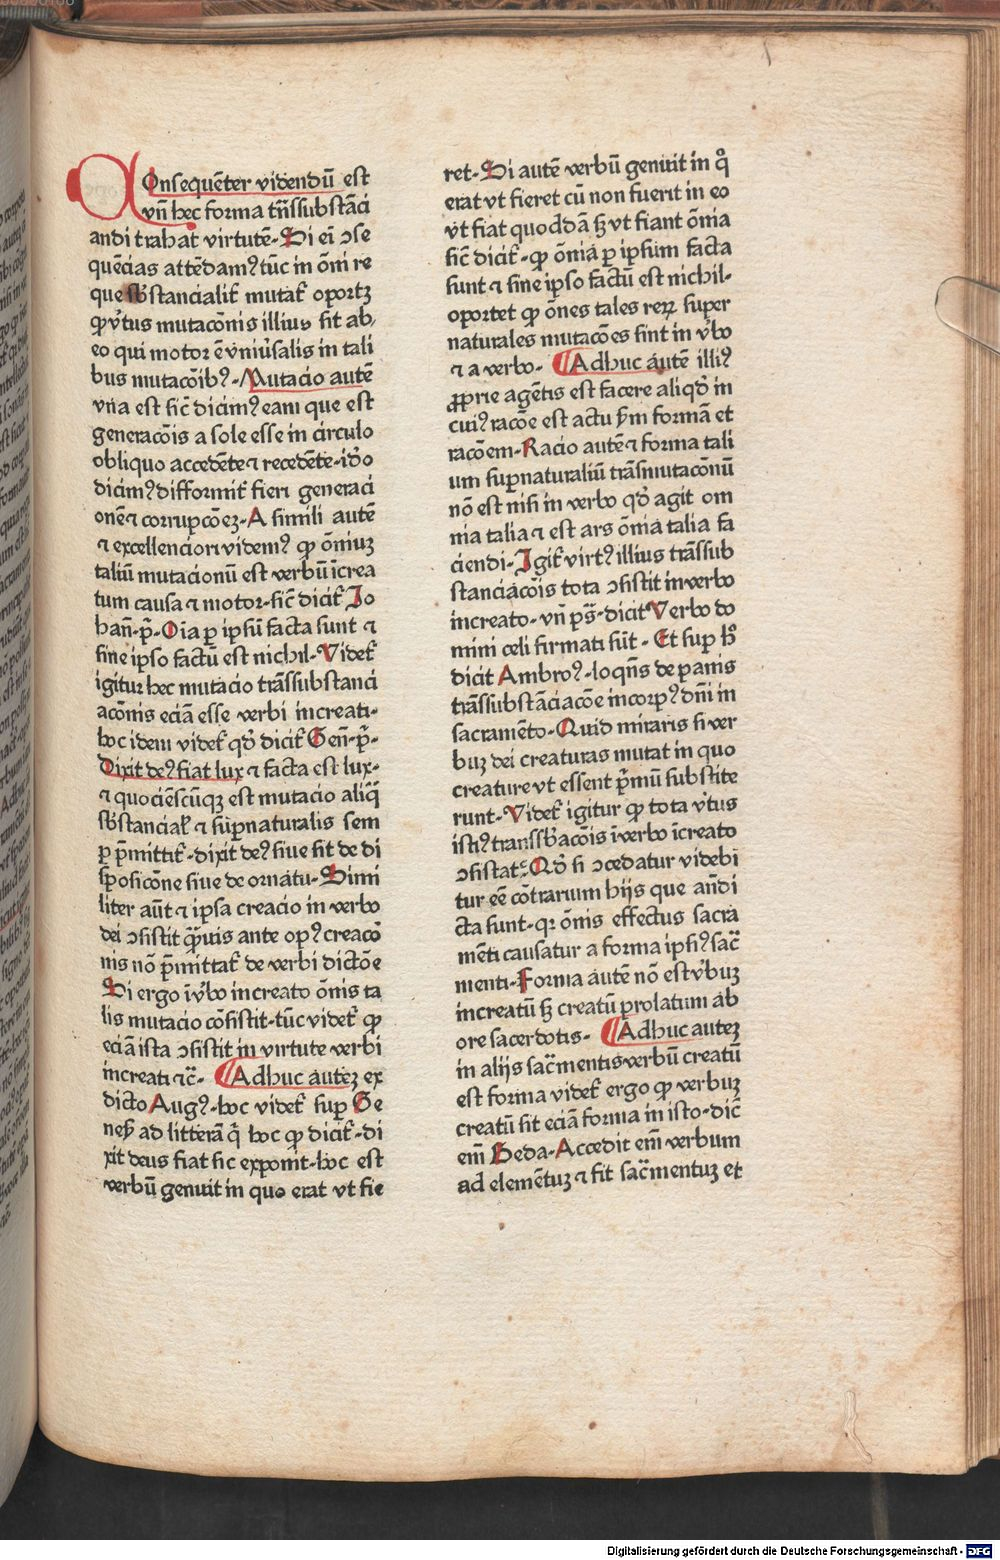 Onsequēter videndū est
vn̄ hec forma trāssubstāci
andi trahat virtutē. Si eī ɔse
quēcias attēdamꝰ tūc in om̄i re
que sb̄stancialit̄ mutat̄ oportꝫ
ꝙ v̄tus mutacōnis illius sit ab
eo qui motor ē vniūsalis in tali
bus mutacōibꝰ. Mutacio autē
vna est sic̄ dicimꝰ eam que est
generacōis a sole esse in circulo
obliquo accedēte ⁊ recedēte. id̄o
dicimꝰ difformit̄ fieri generaci
onē ⁊ corrupcōeꝫ. A simili autē
⁊ excellenciori videmꝰ ꝙ om̄iuꝫ
taliū mutacionū est verbū īcrea
tum causa ⁊ motor. sic̄ dicit̄ Jo
han̄. p̄. Oīa ꝑ ipsū facta sunt ⁊
sine ipso factū est nichil. Videt̄
igitur hec mutacio trāssubstanci
acōnis eciā esse verbi increati.
hoc idem videt̄ qd̄ dicit̄ Gen̄. p̄.
Dixit deꝰ fiat lux ⁊ facta est lux.
⁊ quociēscūqꝫ est mutacio aliq̄
sb̄stancial̄ ⁊ sup̄naturalis sem
ꝑ p̄mittit̄. dixit deꝰ siue sit de di
sposicōne siue de ornatu. Simi
liter aūt ⁊ ipsa creacio in verbo
dei ɔsistit q̄uis ante opꝰ creacō
nis nō p̄mittat̄ de verbi dictōe
Si ergo ī v̄bo increato om̄is ta
lis mutacio cōsistit. tūc videt̄ ꝙ
eciā ista ɔsistit in virtute verbi
increati ⁊c̄. Adhuc auteꝫ ex
dicto Augꝰ. hoc videt̄ suꝑ Ge
nes̄ ad litterā q̄ hoc ꝙ dicit̄. di
xit deus fiat sic exponit. hoc est
verbū genuit in quo erat vt fie
ret. Si autē verbū genuit in q̊
erat vt fieret cū non fuerit in eo
vt fiat quoddā sꝫ vt fiant om̄ia
sic̄ dicit̄. ꝙ om̄ia ꝑ ipsum facta
sunt ⁊ sine ipso factū est nichil.
oportet ꝙ om̄es tales reꝝ super
naturales mutacōes sint in v̄bo
⁊ a verbo. Adhuc autē illiꝰ
ꝓprie agētis est facere aliqd̄ in
cuiꝰ racōe est actu sm̄ formā et
racōem. Racio autē ⁊ forma tali
um sup̄naturaliū trāsmutacōnū
nō est nisi in verbo qd̄ agit om
nia talia ⁊ est ars om̄ia talia fa
ciendi. Igit̄ virtꝰ illius trāssub
stanciacōis tota ɔsistit in verbo
increato. vn̄ pš. dicit Verbo do
mini celi firmati sūt. Et suꝑ h̄
dicit Ambroꝰ. loqn̄s de panis
trāssubstāciacōe in corpꝰ dn̄i in
sacramēto. Quid miraris si ver
buꝫ dei creaturas mutat in quo
creature vt essent p̄mū substite
runt. Videt̄ igitur ꝙ tota v̄tus
istiꝰ transsb̄acōis ī verbo īcreato
ɔsistat. Qd̄ si ɔcedatur videbi
tur eē cōtrarium hijs que an̄di
cta sunt. qꝛ om̄is effectus sacra
mēti causatur a forma ipsiꝰ sac̄
menti. Forma autē nō est v̄buꝫ
increatū sꝫ creatū prolatum ab
ore sacerdotis. Adhuc auteꝫ
in alijs sac̄mentis verbū creatū
est forma videt̄ ergo ꝙ verbuꝫ
creatū sit eciā forma in isto. dic̄
em̄ Beda. Accedit em̄ verbum
ad elemētuꝫ ⁊ fit sac̄mentuꝫ et
Digitalisierung gefördert durch die Deutsche Forschungsgemeinschaft - DFG